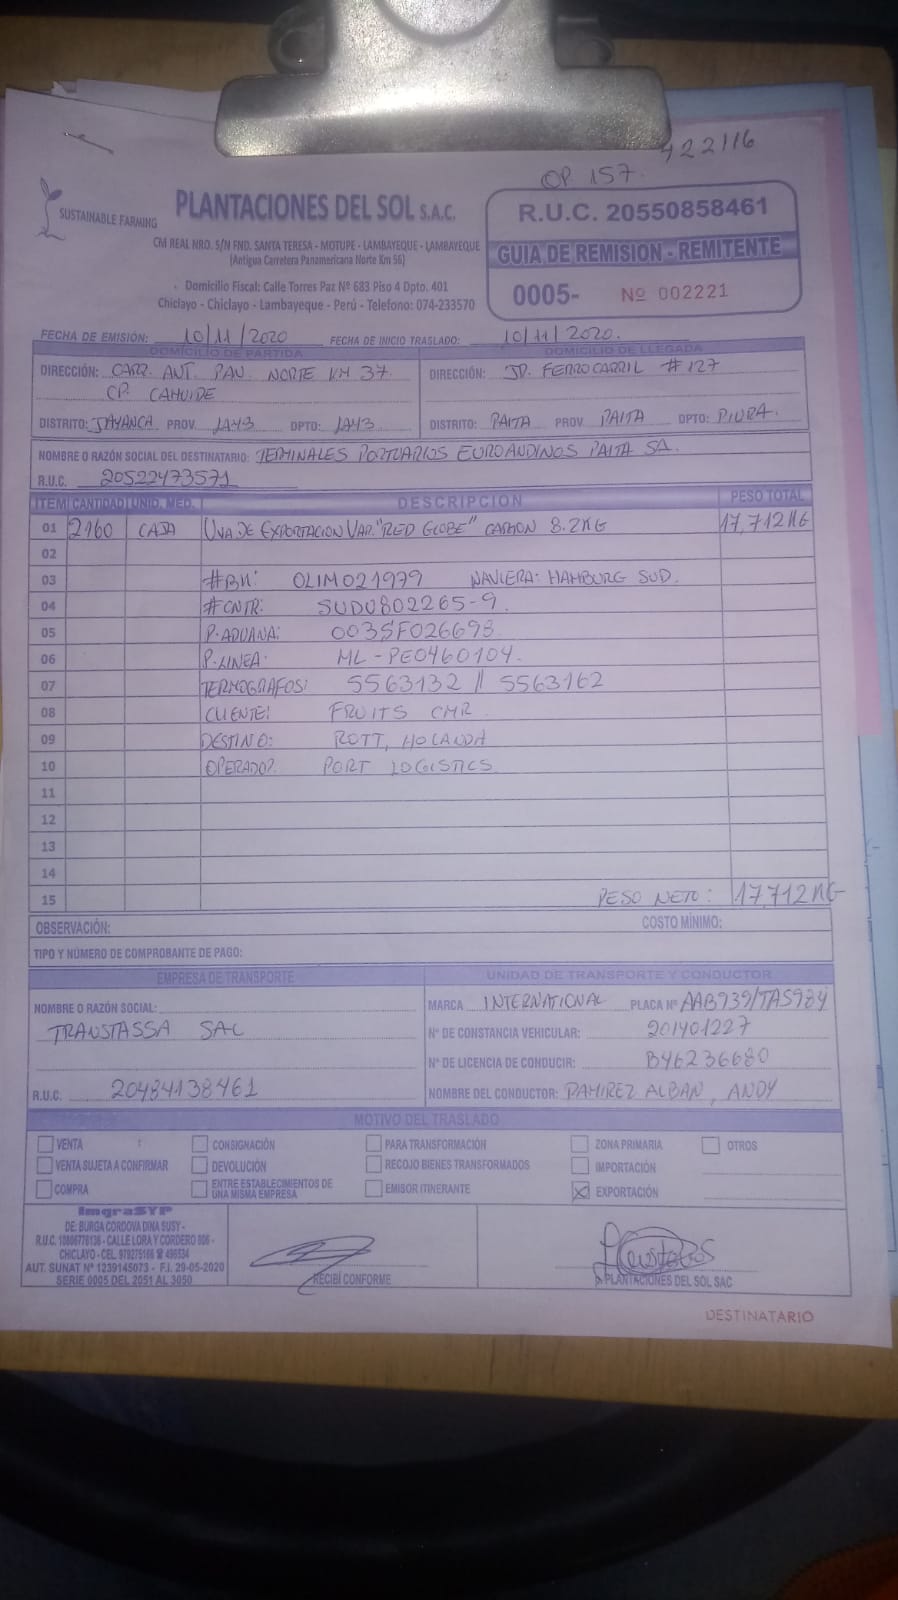 422116
OP 157.
SUSTAINABLE FARMING
PLANTACIONES DEL SOL S.A.C.
CM REAL NRO. S/N FND. SANTA TERESA - MOTUPE - LAMBAYEQUE - LAMBAYEQUE
(Antigua Carretera Panamericana Norte Km 56)
Domicilio Fiscal: Calle Torres Paz Nº 683 Piso 4 Dpto. 401
Chiclayo - Chiclayo - Lambayeque - Perú - Telefono: 074-233570
R.U.C. 20550858461
GUIA DE REMISION - REMITENTE
0005- Nº 002221
FECHA DE EMISIÓN: 10/11/2020 FECHA DE INICIO TRASLADO: 10/11/2020.
DOMICILIO DE PARTIDA DOMICILIO DE LLEGADA
DIRECCIÓN: CARR. ANT. PAN. NORTE KM 37 DIRECCIÓN: JR. FERROCARRIL # 127
CP. CAHUIDE
DISTRITO: JAYANCA PROV. LAMB DPTO: LAMB DISTRITO: PAITA PROV. PAITA DPTO: PIURA.
NOMBRE O RAZÓN SOCIAL DEL DESTINATARIO: TERMINALES PORTUARIOS EUROANDINOS PAITA SA.
R.U.C. 20522473571
ITEM CANTIDAD UNID. MED. DESCRIPCION PESO TOTAL
01 2160 CAJA UVA DE EXPORTACION VAR. "RED GLOBE" CARTON 8.2KG 17,712KG
02
03 #BK: OLIM021979 NAVIERA: HAMBURG SUD.
04 #CNTR: SUDU802265-9.
05 P. ADUANA: 003SF026698
06 P. LINEA: ML-PE0460104.
07 TERMOGRAFOS: 5563132 // 5563162
08 CLIENTE: FRUITS CMR
09 DESTINO: ROTT, HOLANDA
10 OPERADOR: PORT LOGISTICS
11
12
13
14
15 PESO NETO: 17,712KG
OBSERVACIÓN: COSTO MÍNIMO:
TIPO Y NÚMERO DE COMPROBANTE DE PAGO:
EMPRESA DE TRANSPORTE UNIDAD DE TRANSPORTE Y CONDUCTOR
NOMBRE O RAZÓN SOCIAL: MARCA INTERNATIONAL PLACA Nº AAB939/TAS984
TRANSTASSA SAC Nº DE CONSTANCIA VEHICULAR: 201401227
Nº DE LICENCIA DE CONDUCIR: B46236680
R.U.C. 20484138461 NOMBRE DEL CONDUCTOR: RAMIREZ ALBAN, ANDY
MOTIVO DEL TRASLADO
VENTA CONSIGNACIÓN PARA TRANSFORMACIÓN ZONA PRIMARIA OTROS
VENTA SUJETA A CONFIRMAR DEVOLUCIÓN RECOJO BIENES TRANSFORMADOS IMPORTACIÓN
COMPRA ENTRE ESTABLECIMIENTOS DE UNA MISMA EMPRESA EMISOR ITINERANTE X EXPORTACIÓN
ImgraSYP
DE: BURGA CORDOVA DINA SUSY -
CALLE LORA Y CORDERO
CHICLAYO - CEL.
AUT. SUNAT Nº 1239145073 - F.I. 29-05-2020
SERIE 0005 DEL 2051 AL 3050
RECIBÍ CONFORME
PLANTACIONES DEL SOL SAC
DESTINATARIO